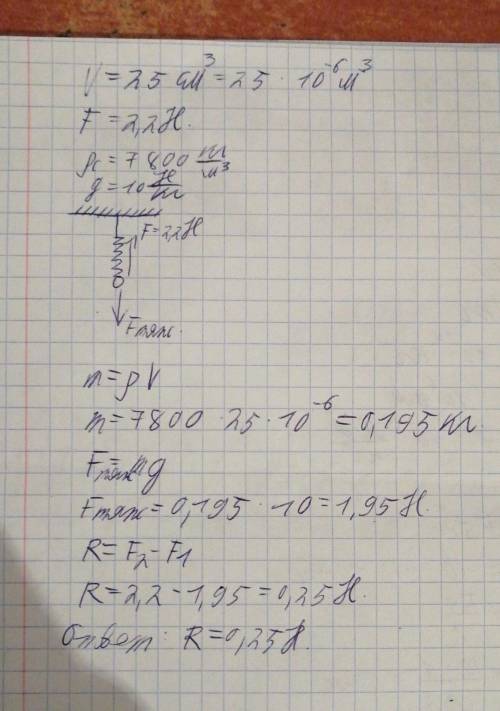 V = 25 см³ = 25 · 10⁻⁶ м³
F = 2,2 Н.
ρс = 7800 кг/м³
g = 10 Н/кг
F = 2,2 Н
Fтяж.
m = ρV
m = 7800 · 25 · 10⁻⁶ = 0,195 кг
Fтяж = mg
Fтяж = 0,195 · 10 = 1,95 Н.
R = F₂ - F₁
R = 2,2 - 1,95 = 0,25 Н.
Ответ: R = 0,25 Н.